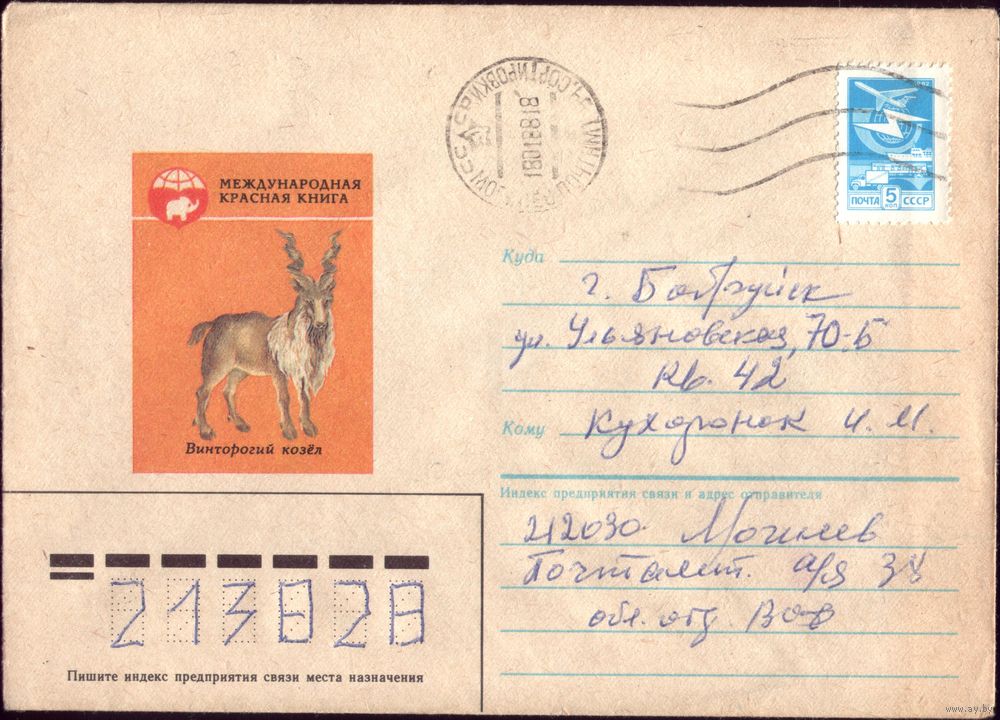 МЕЖДУНАРОДНАЯ
КРАСНАЯ КНИГА
Винторогий козёл
ПОЧТА 5 КОП СССР
18018818
Куда
г. Бобруйск
ул. Ульяновская, 70-Б
кв. 42
Кому Кухаронок И. М.
Индекс предприятия связи и адрес отправителя
212030 Могилев
Почтамт. а/я 38
обл. отд. ВОФ
213828
Пишите индекс предприятия связи места назначения
www.ay.by